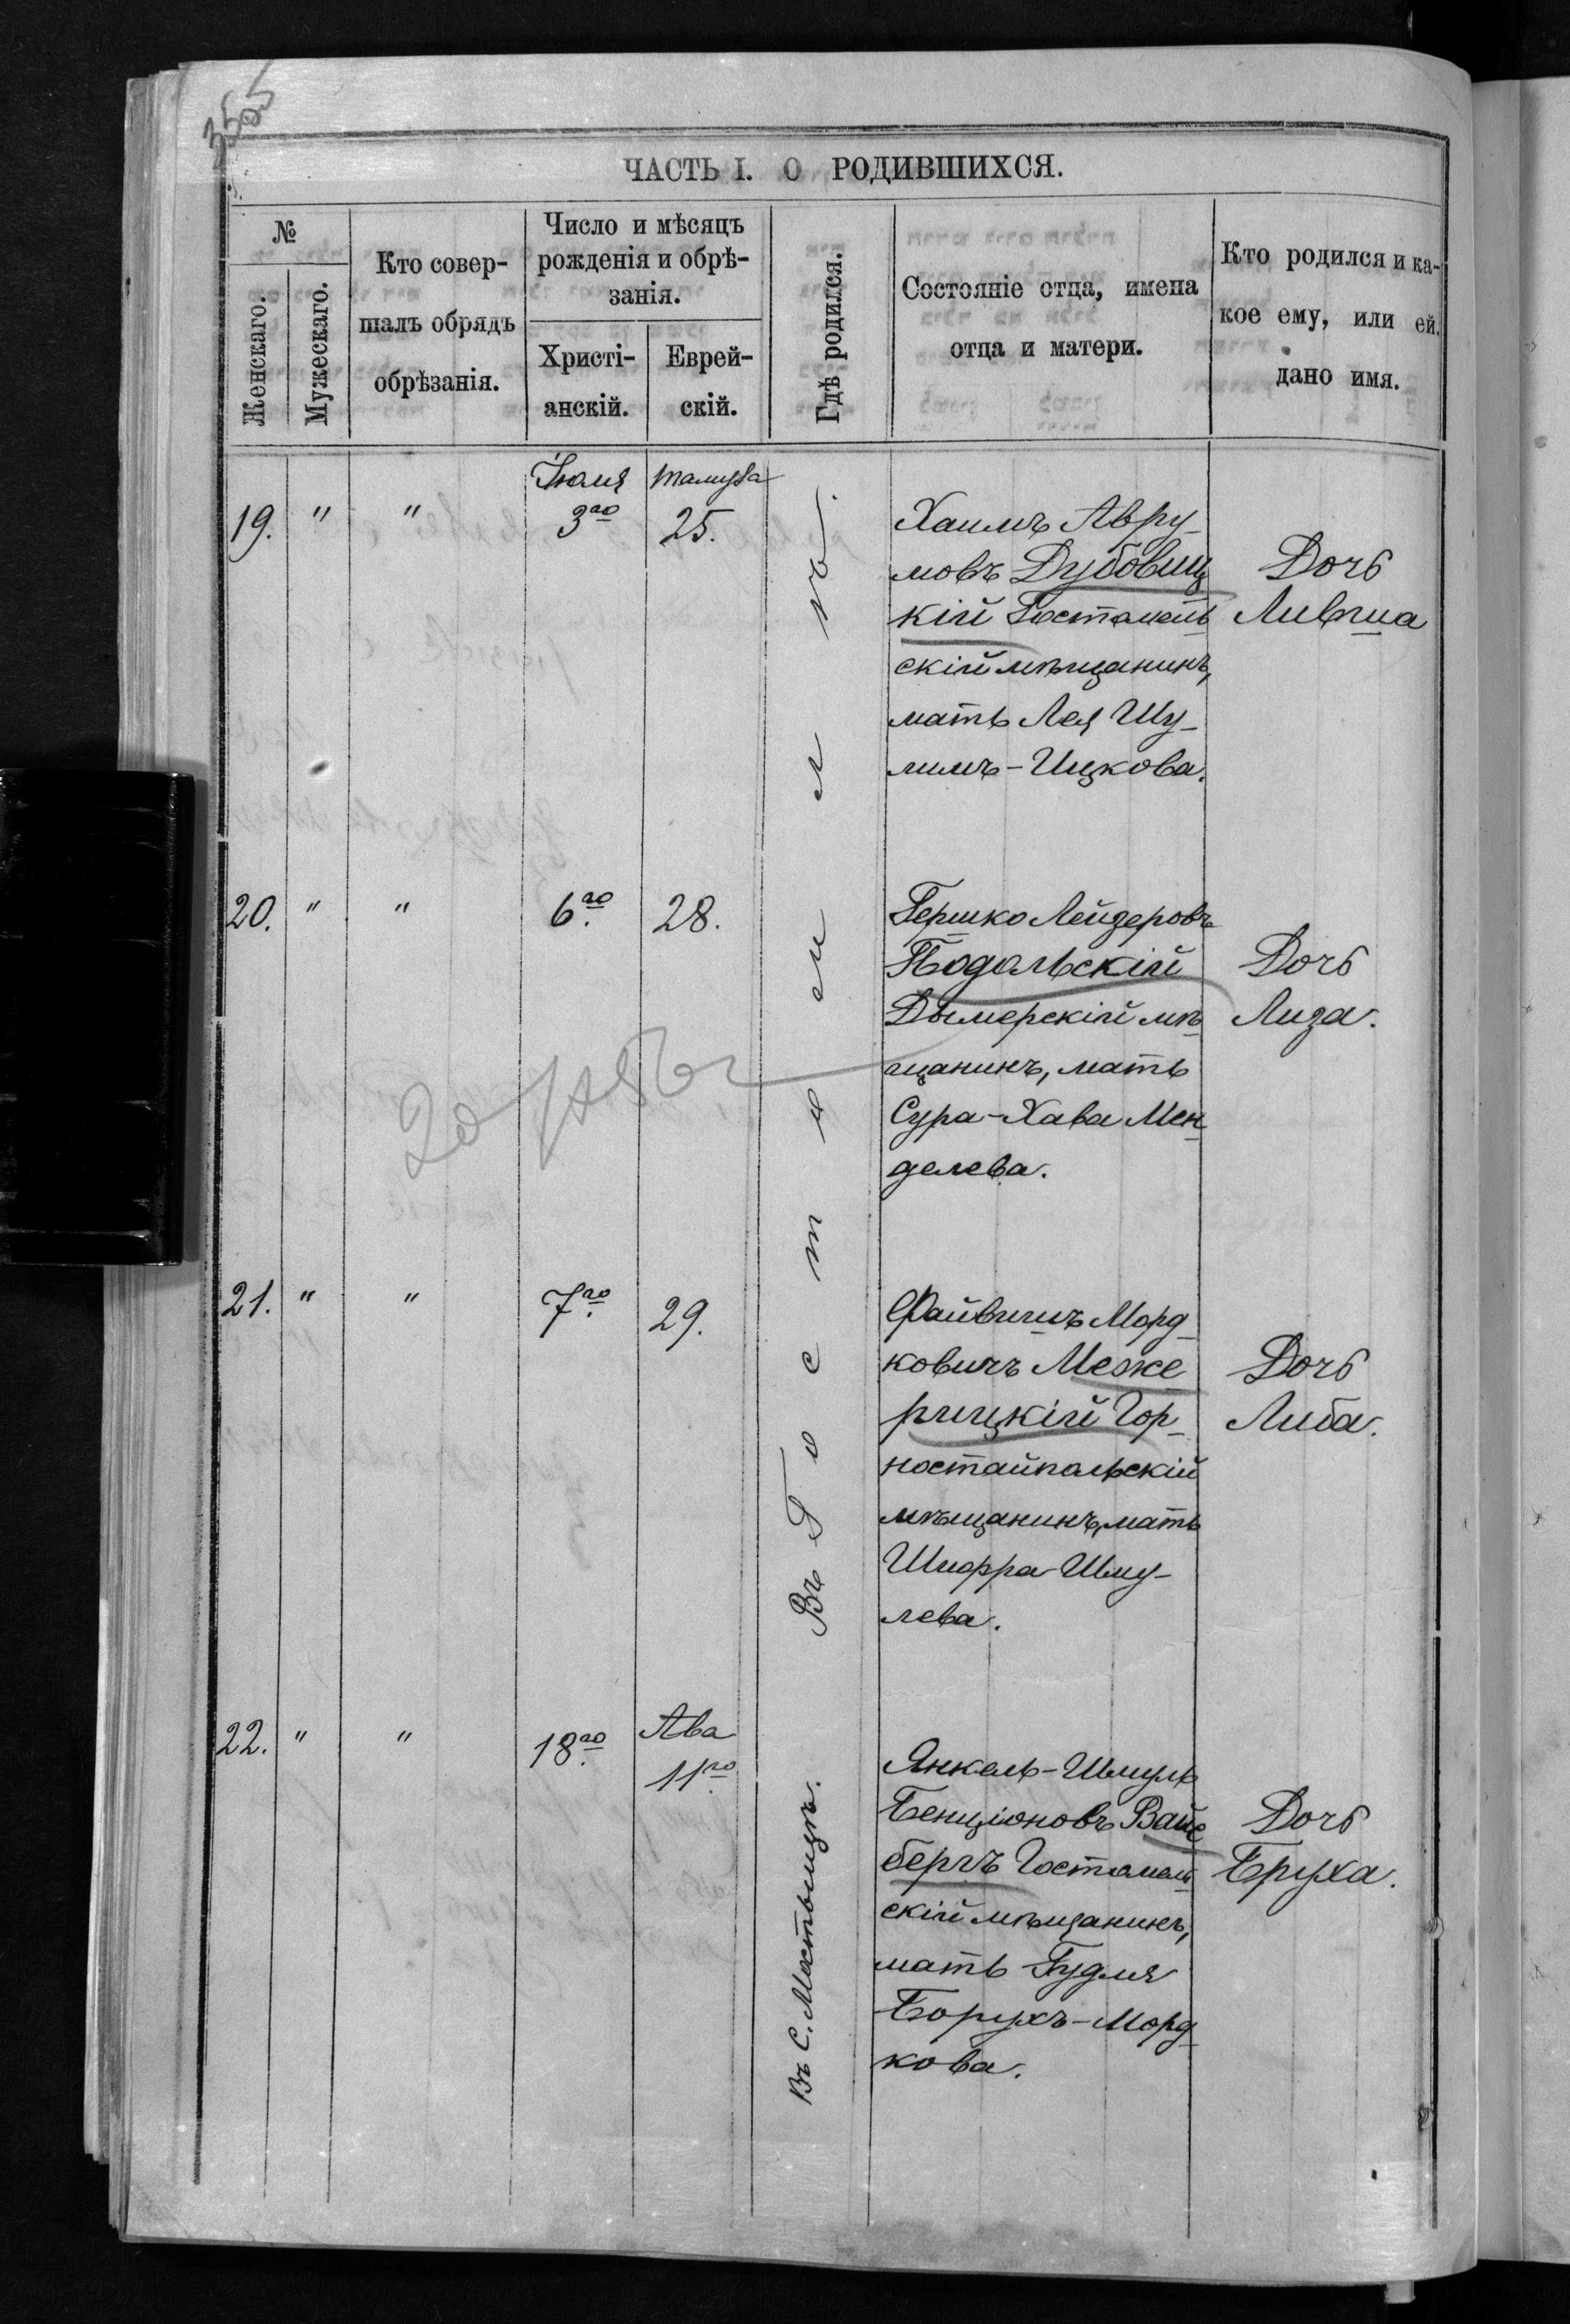 ЧАСТЬ I. О РОДИВШИХСЯ.
№
Женскаго.
Мужескаго.
Кто совер-
шалъ обрядъ
обрѣзанія.
Число и мѣсяцъ
рожденія и обрѣ-
занія.
Христі-
анскій.
Еврей-
скій.
Гдѣ родился.
Состояніе отца, имена
отца и матери.
Кто родился и ка-
кое ему, или ей.
дано имя.
Іюля
Тамуза
19. " " 3го 25.
Хаимъ Авру-
мовъ Дубовиц
кій Гостомель
скій мѣщанинъ,
мать Лея Шу-
лимъ-Ицкова.
Дочь
20. " " 6го. 28.
Гершко Лейзеровъ
Подольскій
Дымерскій мѣ
щанинъ, мать
Сура-Хава Мен
делева.
Дочь
Лиза.
21. " " 7го. 29.
Файвишъ Морд-
ковичъ Меже
рицкій Гор-
ностайпольскій
мѣщанинъ, мать
Шифра Шму-
лева.
Дочь
Либа.
Въ Гостомлѣ.
22. " " 18го. Ава
11го
Янкель-Шмуль
Бенціоновъ Вайс
бергъ Гостомель
скій мѣщанинъ,
мать Гудля
Борухъ-Морд
кова.
Дочь
Бруха.
Въ С.